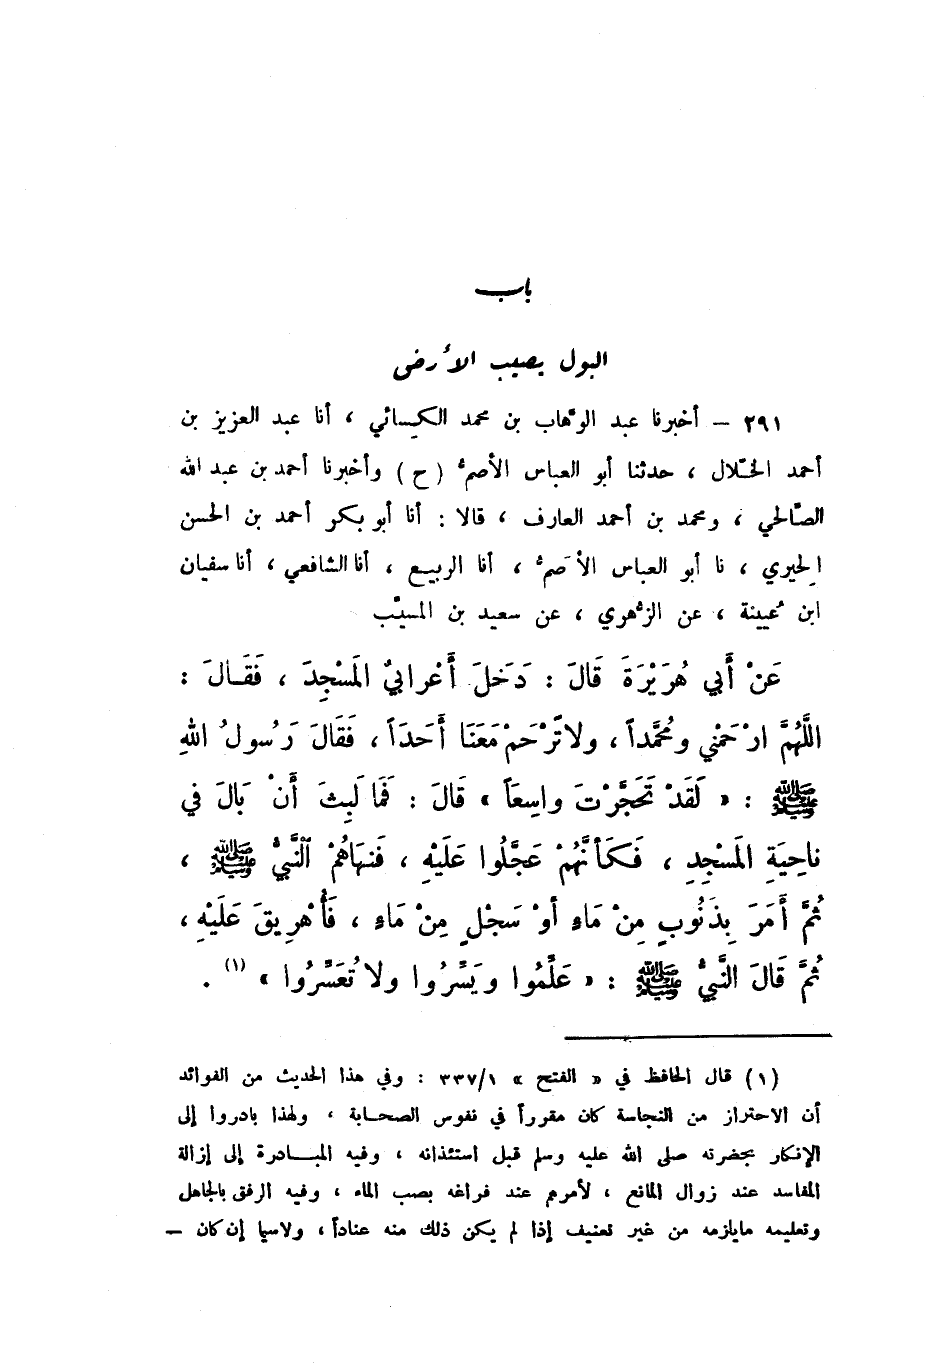 باب
البول يصيب الأرض
٢٩١ – أخبرنا عبد الوهّاب بن محمد الكيسائي ، أنا عبد العزيز بن
أحمد الخلّال ، حدثنا أبو العباس الأصمّ ( ح ) وأخبرنا أحمد بن عبد الله
الصّالحي ، ومحمد بن أحمد العارف ، قالا : أنا أبو بكر أحمد بن الحسن
الحِيري ، نا أبو العباس الأصمّ ، أنا الربيع ، أنا الشافعي ، أنا سفيان
ابن عُيينة ، عن الزّهري ، عن سعيد بن المسيّب
عَنْ أَبي هُرَيْرَةَ قَالَ : دَخَلَ أَعْرابيٌ المَسْجِدَ ، فَقَالَ :
اللَّهُمَّ ارْحَمْني ومُحَمَّداً ، ولا تَرْحَمْ مَعَنَا أَحَدَاً ، فَقَالَ رَسُولُ اللهِ
ﷺ : « لَقَدْ تَحَجَّرْتَ واسِعَاً » قَالَ : فَمَا لَبِثَ أَنْ بَالَ في
ناحِيَةِ المَسْجِدِ ، فَكَأنَّهُمْ عَجَّلُوا عَلَيْهِ ، فَنهَاهُمْ النَّبيُّ ﷺ ،
ثُمَّ أَمَرَ بِذَنُوبٍ مِنْ مَاءٍ أوْ سَجْلٍ مِنْ مَاءٍ ، فَأُهْرِيقَ عَلَيْهِ ،
ثُمَّ قَالَ النَّبيُّ ﷺ : « عَلِّمُوا ويَسِّرُوا ولا تُعَسِّرُوا » (١) .
(١) قال الحافظ في « الفتح » ٣٣٧/١ : وفي هذا الحديث من الفوائد
أن الاحتراز من النجاسة كان مقرراً في نفوس الصحابة ، ولهذا بادروا إلى
الإنكار بحضرته صلى الله عليه وسلم قبل استئذانه ، وفيه المبادرة إلى إزالة
المفاسد عند زوال المانع ، لأمرهم عند فراغه بصب الماء ، وفيه الرفق بالجاهل
وتعليمه مايلزمه من غير تعنيف إذا لم يكن ذلك منه عناداً ، ولاسيما إن كان –